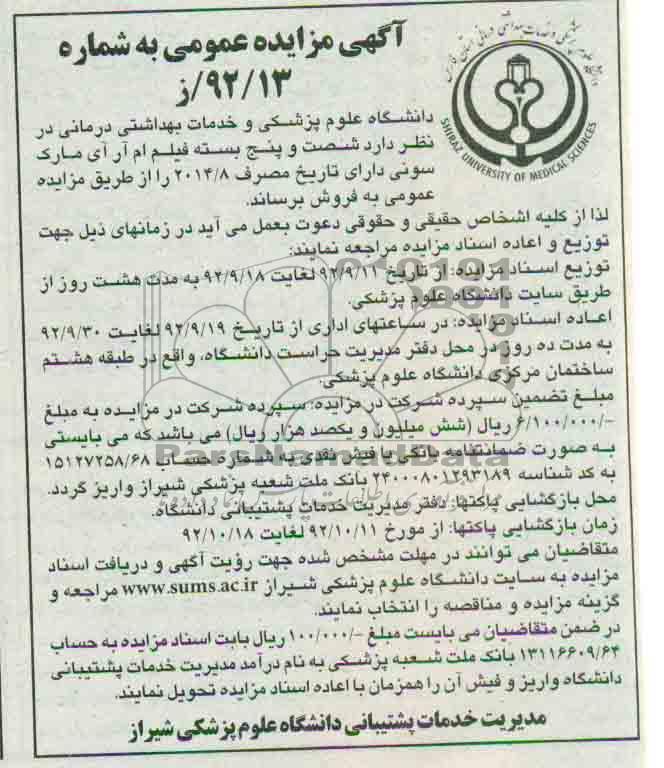 آگهی مزایده عمومی به شماره
۹۲/۱۳/ز
SHIRAZ UNIVERSITY OF MEDICAL SCIENCES
دانشگاه علوم پزشکی و خدمات بهداشتی درمانی در
نظر دارد شصت و پنج بسته فیلم ام آر آی مارک
سونی دارای تاریخ مصرف ۲۰۱۴/۸ را از طریق مزایده
عمومی به فروش برساند.
لذا از کلیه اشخاص حقیقی و حقوقی دعوت بعمل می آید در زمانهای ذیل جهت
توزیع و اعاده اسناد مزایده مراجعه نمایند:
توزیع اسناد مزایده: از تاریخ ۹۲/۹/۱۱ لغایت ۹۲/۹/۱۸ به مدت هشت روز از
طریق سایت دانشگاه علوم پزشکی.
اعاده اسناد مزایده: در ساعتهای اداری از تاریخ ۹۲/۹/۱۹ لغایت ۹۲/۹/۳۰
به مدت ده روز در محل دفتر مدیریت حراست دانشگاه، واقع در طبقه هشتم
ساختمان مرکزی دانشگاه علوم پزشکی.
مبلغ تضمین سپرده شرکت در مزایده: سپرده شرکت در مزایده به مبلغ
۶/۱۰۰/۰۰۰/- ریال (شش میلیون و یکصد هزار ریال) می باشد که می بایستی
به صورت ضمانتنامه بانکی یا فیش نقدی به شماره حساب ۱۵۱۲۷۲۵۸/۶۸
به کد شناسه ۲۴۰۰۰۸۰۱۲۹۳۱۸۹ بانک ملت شعبه پزشکی شیراز واریز گردد.
محل بازگشایی پاکتها: دفتر مدیریت خدمات پشتیبانی دانشگاه.
زمان بازگشایی پاکتها: از مورخ ۹۲/۱۰/۱۱ لغایت ۹۲/۱۰/۱۸
متقاضیان می توانند در مهلت مشخص شده جهت رؤیت آگهی و دریافت اسناد
مزایده به سایت دانشگاه علوم پزشکی شیراز www.sums.ac.ir مراجعه و
گزینه مزایده و مناقصه را انتخاب نمایند.
در ضمن متقاضیان می بایست مبلغ ۱۰۰/۰۰۰/- ریال بابت اسناد مزایده به حساب
۱۳۱۱۶۶۰۹/۶۴ بانک ملت شعبه پزشکی به نام درآمد مدیریت خدمات پشتیبانی
دانشگاه واریز و فیش آن را همزمان با اعاده اسناد مزایده تحویل نمایند.
مدیریت خدمات پشتیبانی دانشگاه علوم پزشکی شیراز
ParsNamadData